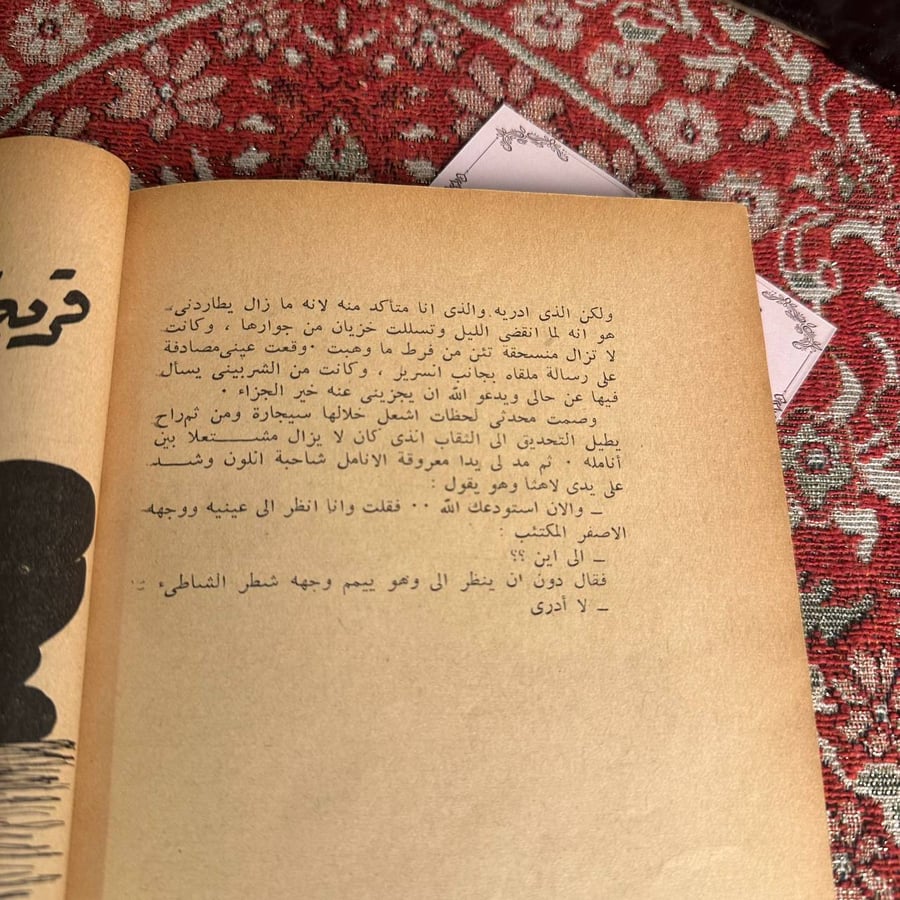 ولكن الذى ادريه والذى انا متأكد منه لانه ما زال يطاردنى
هو انه لما انقضى الليل وتسللت خزيان من جوارها ، وكانت
لا تزال منسحقة تئن من فرط ما وهبت ٠ وقعت عينى مصادفة
على رسالة ملقاه بجانب السرير ، وكانت من الشربينى يسأل
فيها عن حالى ويدعو الله ان يجزينى عنه خير الجزاء ٠
وصمت محدثى لحظات اشعل خلالها سيجارة ومن ثم راح
يطيل التحديق الى الثقاب الذى كان لا يزال مشـــــتعلا بين
أنامله ٠ ثم مد لى يدا معروقة الانامل شاحبة اللون وشـــد
على يدى لاهثا وهو يقول :
ـ والان استودعك الله ٠٠ فقلت وانا انظر الى عينيه ووجهه
الاصفر المكتئب :
ـ الى اين ؟؟
فقال دون ان ينظر الى وهو ييمم وجهه شطر الشاطىء :
ـ لا أدرى